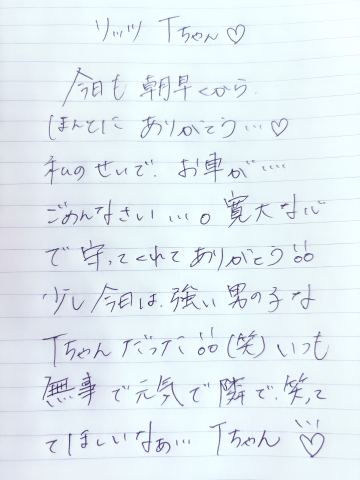 リッツ Tちゃん♡
今日も 朝早くから.
ほんとに ありがとう…♡
私のせいで. お車が….
ごめんなさい…。寛大な心
で 守ってくれて ありがとう
少し 今日は. 強い 男の子な
Tちゃん だった (笑) いつも
無事で元気で隣で. 笑って
てほしいなぁ… Tちゃん ♡